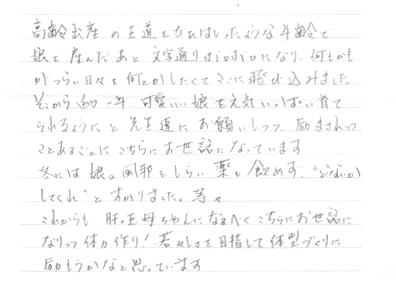 高齢出産の王道をひたはしったような年齢で
娘を産んだあと文字通りボロボロになり、何もかも
がつらい日々を何とかしたくてここに飛び込みました
それから約一年 可愛いい娘を元気いっぱい育て
られるようにと先生達にお願いしつつ、励まされつつ
ことあるごとにこちらにお世話になっています
冬には娘の風邪をもらい薬も飲めず、"どうにか
してくれ"とすがりました。等々
これからも肝っ玉母ちゃんになるべくこちらにお世話に
なりつつ体力作り!若々しさを目指して体型づくりに
励もうかなと思っています